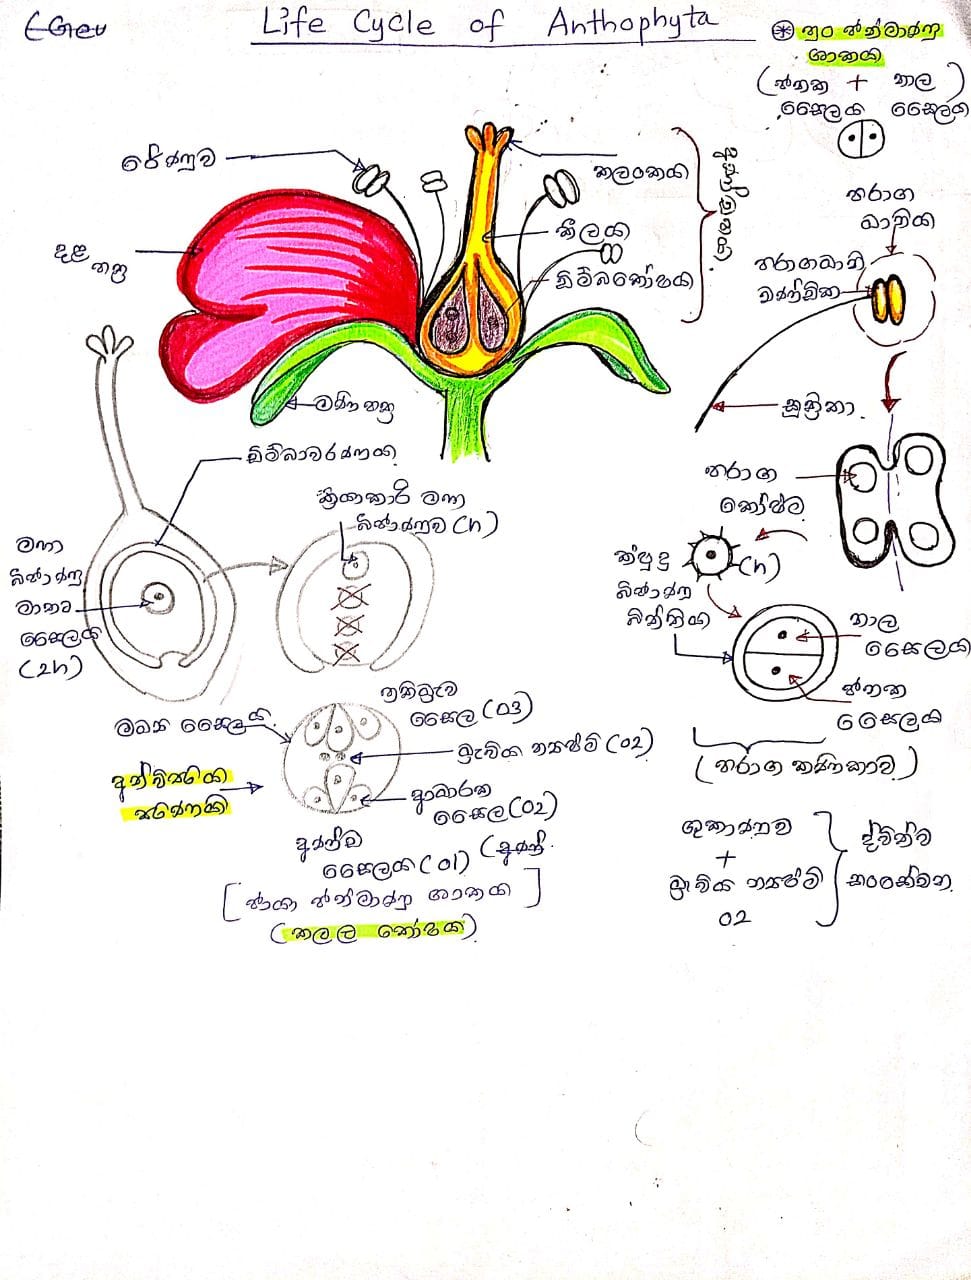 Life Cycle of Anthophyta
පුං ජන්මාණු
ශාකය
(ජනක + නාල)
සෛලය සෛලය
රේණුව
කලංකය
කීලය
ඩිම්බකෝෂය
දළ
පත්‍ර
මණි පත්‍ර
පරාග
ධානිය
පරාගධානි
ඛණ්ඩිකා
සූත්‍රිකා
ඩිම්බාවරණය
ක්‍රියාකාරී මහා
බීජාණුව (n)
මහා
බීජාණු
මාතෘ
සෛලය
(2n)
පරාග
කෝෂ්ඨ
ක්ෂුද්‍ර
බීජාණු
බිත්තිය
(n)
නාල
සෛලය
ජනක
සෛලය
(පරාග කණිකාව)
ප්‍රතිධ්‍රැව
සෛල (03)
මධ්‍ය සෛලය
ධ්‍රැවීය න්‍යෂ්ටි (02)
ආධාරක
සෛල (02)
අණ්ඩ
සෛලය (01)
[ජායා ජන්මාණු ශාකය]
(කලල කෝෂය)
ශුක්‍රාණුව
+
ධ්‍රැවීය න්‍යෂ්ටි
02
ද්විත්ව
සංසේචන